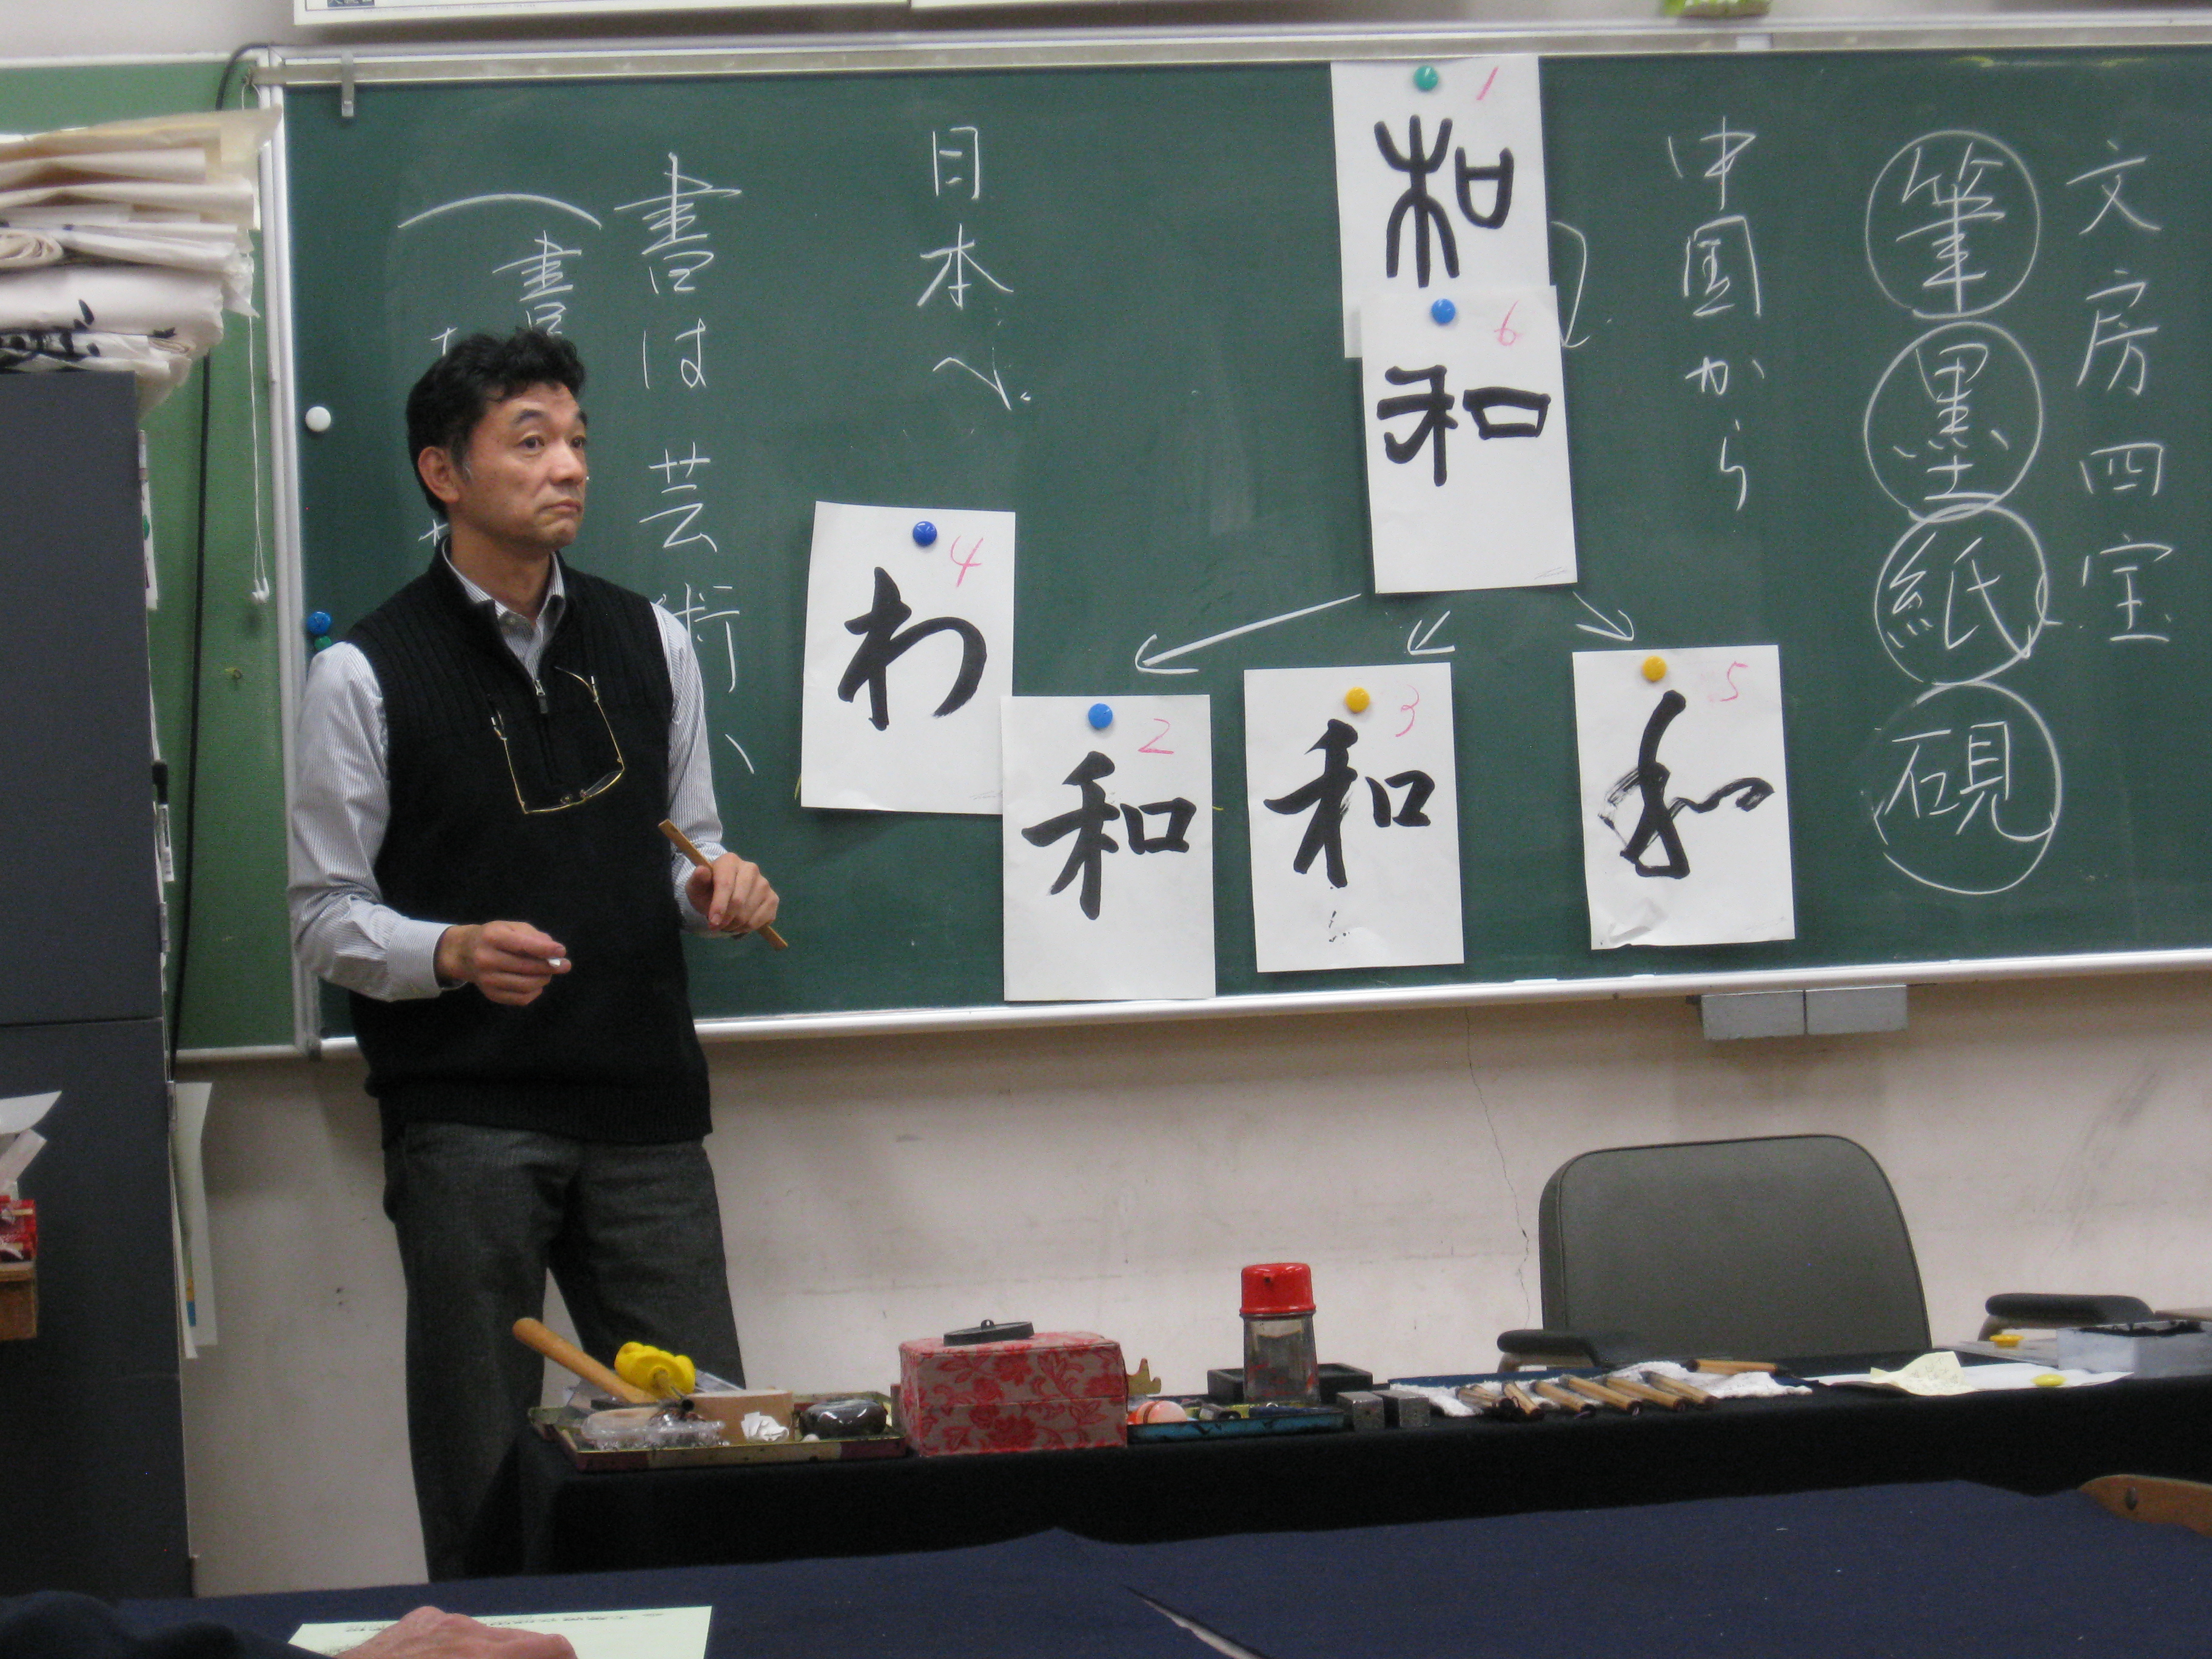 文房四宝
筆墨紙硯
中国から
1
和
6
和
5
和
3
和
2
和
日本へ
4
わ
書は芸術、
(書